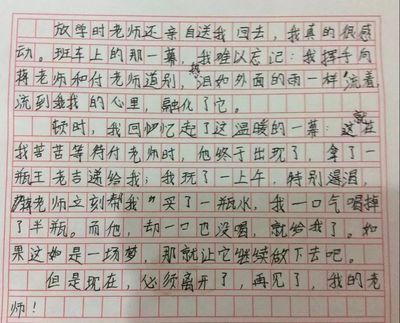 放学时老师还亲自送我回去，我真的很感
动。班车上的那一幕，我难以忘记：我挥手向
蒋老师和付老师道别，泪如外面的雨一样流着，
流到我的心里，融化了它。
顿时，我回忆起了这温暖的一幕：就在
我苦苦等待付老师时，他终于出现了，拿了一
瓶王老吉递给我；我玩了一上午，特别渴，
蒋老师立刻帮我买了一瓶水，我一口气喝掉
了半瓶。而他，却一口也没喝，就给我了。如
果这如是一场梦，那就让它继续做下去吧。
但是现在，必须离开了，再见了，我的老
师！